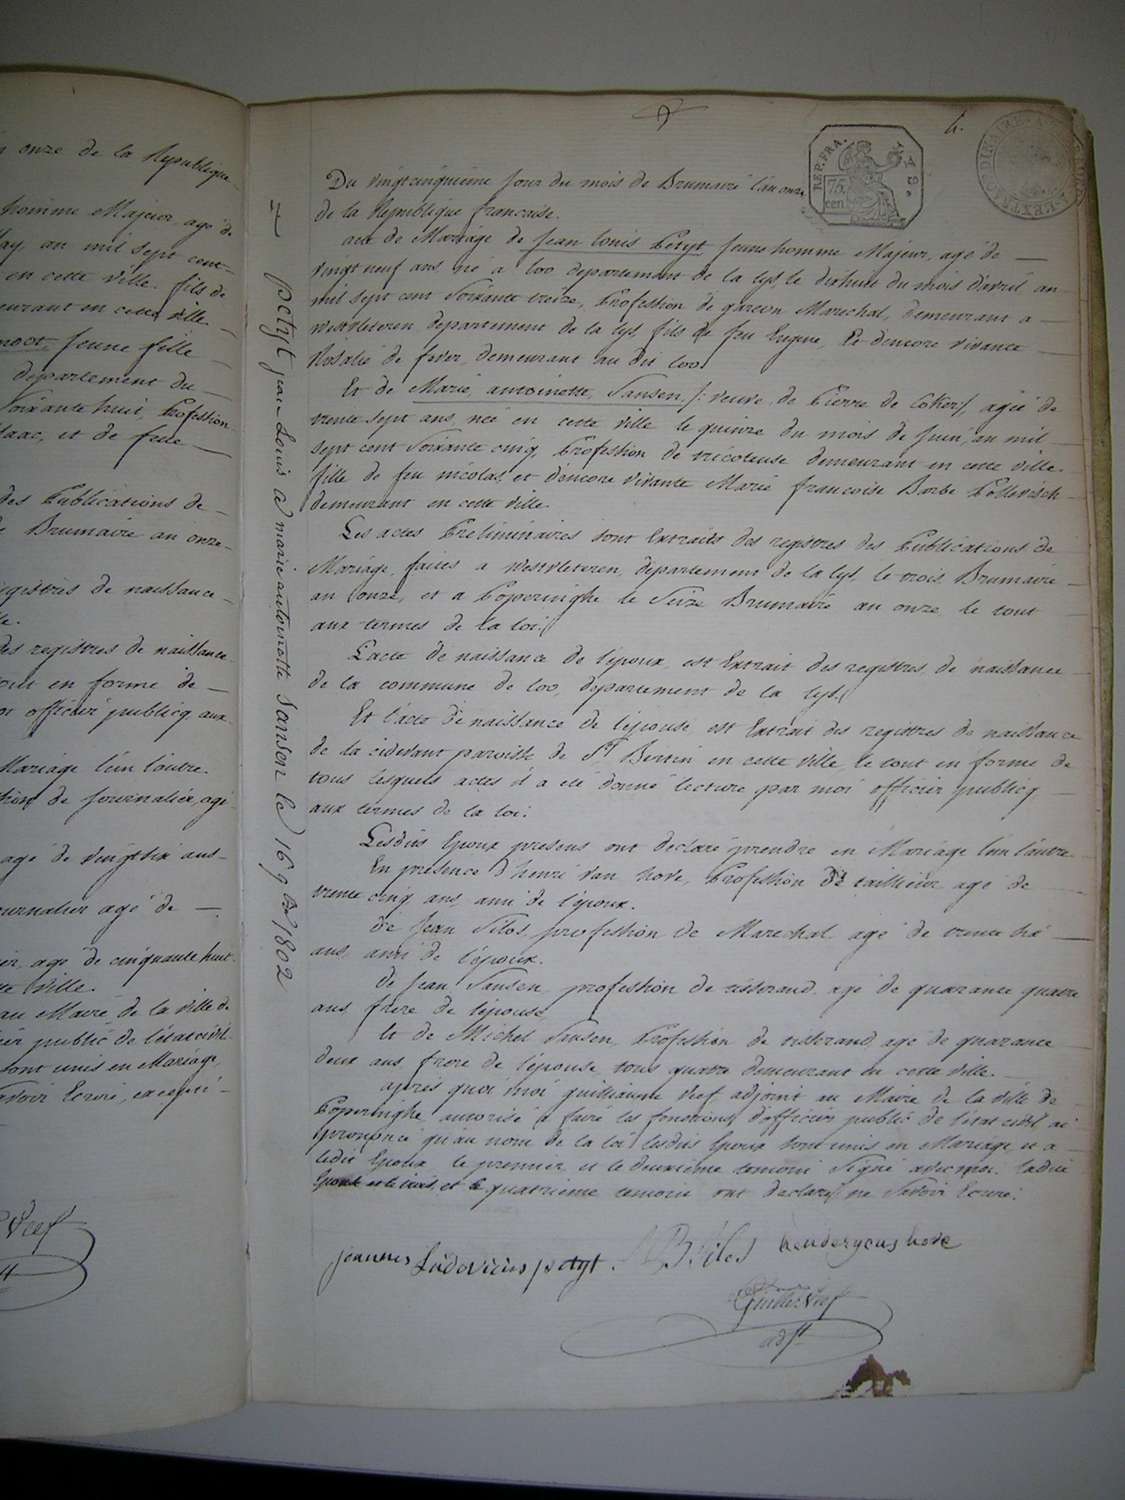 onze de la Republique
homme Majeur agé de
an mil sept cent
en cette ville. fils de
demeurant en cette ville.
Jeune fille
departement du
Soixante huit, Profession
et de
des Publications de
Brumaire an onze
registres de naissance
des registres de naissance
tout en forme de
officier publicq aux
Mariage l'un l'autre.
de Journalier, agé
agé de vingt six ans
Journalier agé de
agé de cinquante huit
ville.
au Maire de la ville de
public de l'état civil
sont unis en Mariage
savoir Ecrire, excepté
Vief
petyt jean Louis & marie antoinette Sansen le 16 9bre 1802
4.
REP. FRA.
75
cen
Du vingtcinquieme Jour du mois de Brumaire l'an onze
de la Republique francaise.
acte de Mariage de Jean Louis Petyt Jeune homme Majeur, agé de
vingt neuf ans, né à loo departement de la lys, le dixhuit du mois d'avril an
mil sept cent Soixante treize, Profession de garcon Marechal, demeurant a
westvleteren departement de la lys fils de feu Eugene, Et d'encore vivante
Rosalie de fever demeurant au dit loo.
Et de Marie, antoinette, Sansen, /: veuve de Pierre de Coker:/ agée de
trente sept ans, née en cette ville le quinze du mois de Juin, an mil
sept cent Soixante cinq, Profession de tricoteuse demeurant en cette ville.
fille de feu nicolas, et d'encore vivante Marie francoise Barbe
demeurant en cette ville.
Les actes Preliminaires sont Extraits des registres des Publications de
Mariage, faites a westvleteren, departement de la lys le trois Brumaire
an onze, et a Poperinghe le Seize Brumaire an onze, le tout
aux termes de la loi.
L'acte de naissance de l'époux est Extrait des registres de naissance
de la commune de loo, departement de la lys.
Et l'acte de naissance de l'épouse, est Extrait des registres de naissance
de la cidevant paroisse de St. Bertin en cette ville le tout en forme de
tous lesquels actes il a été donné lecture par moi officier publicq
aux termes de la loi.
Lesdits Epoux presens ont declaré prendre en Mariage l'un l'autre
En presence d'henri van hove, Profession de taillieur agé de
trente cinq ans, ami de l'époux.
de Jean Silos, profession de Marechal agé de trente six
ans, ami de l'époux.
de Jean Sansen profession de tisserand agé de quarante quatre
ans frere de l'épouse
Et de Michel Sansen, Profession de tisserand, agé de quarante
deux ans, frere de l'épouse tous quatre demeurant en cette ville.
après quoi moi guilliaume Vief adjoint au Maire de la ville de
Poperinghe, autorisé a faire les fonctions d'officier public de l'état civil ai
prononcé qu'au nom de la loi lesdits Epoux sont unis en Mariage, et a
ledit Epoux, le premier et le deuxieme temoin Signé avec moi. ladite
Epouse et le trois, et le quatrieme temoin ont declaré ne Savoir Ecrire.
joannes Ludovicus petyt Silos hendericus hove
Guille. Vief
adjt.